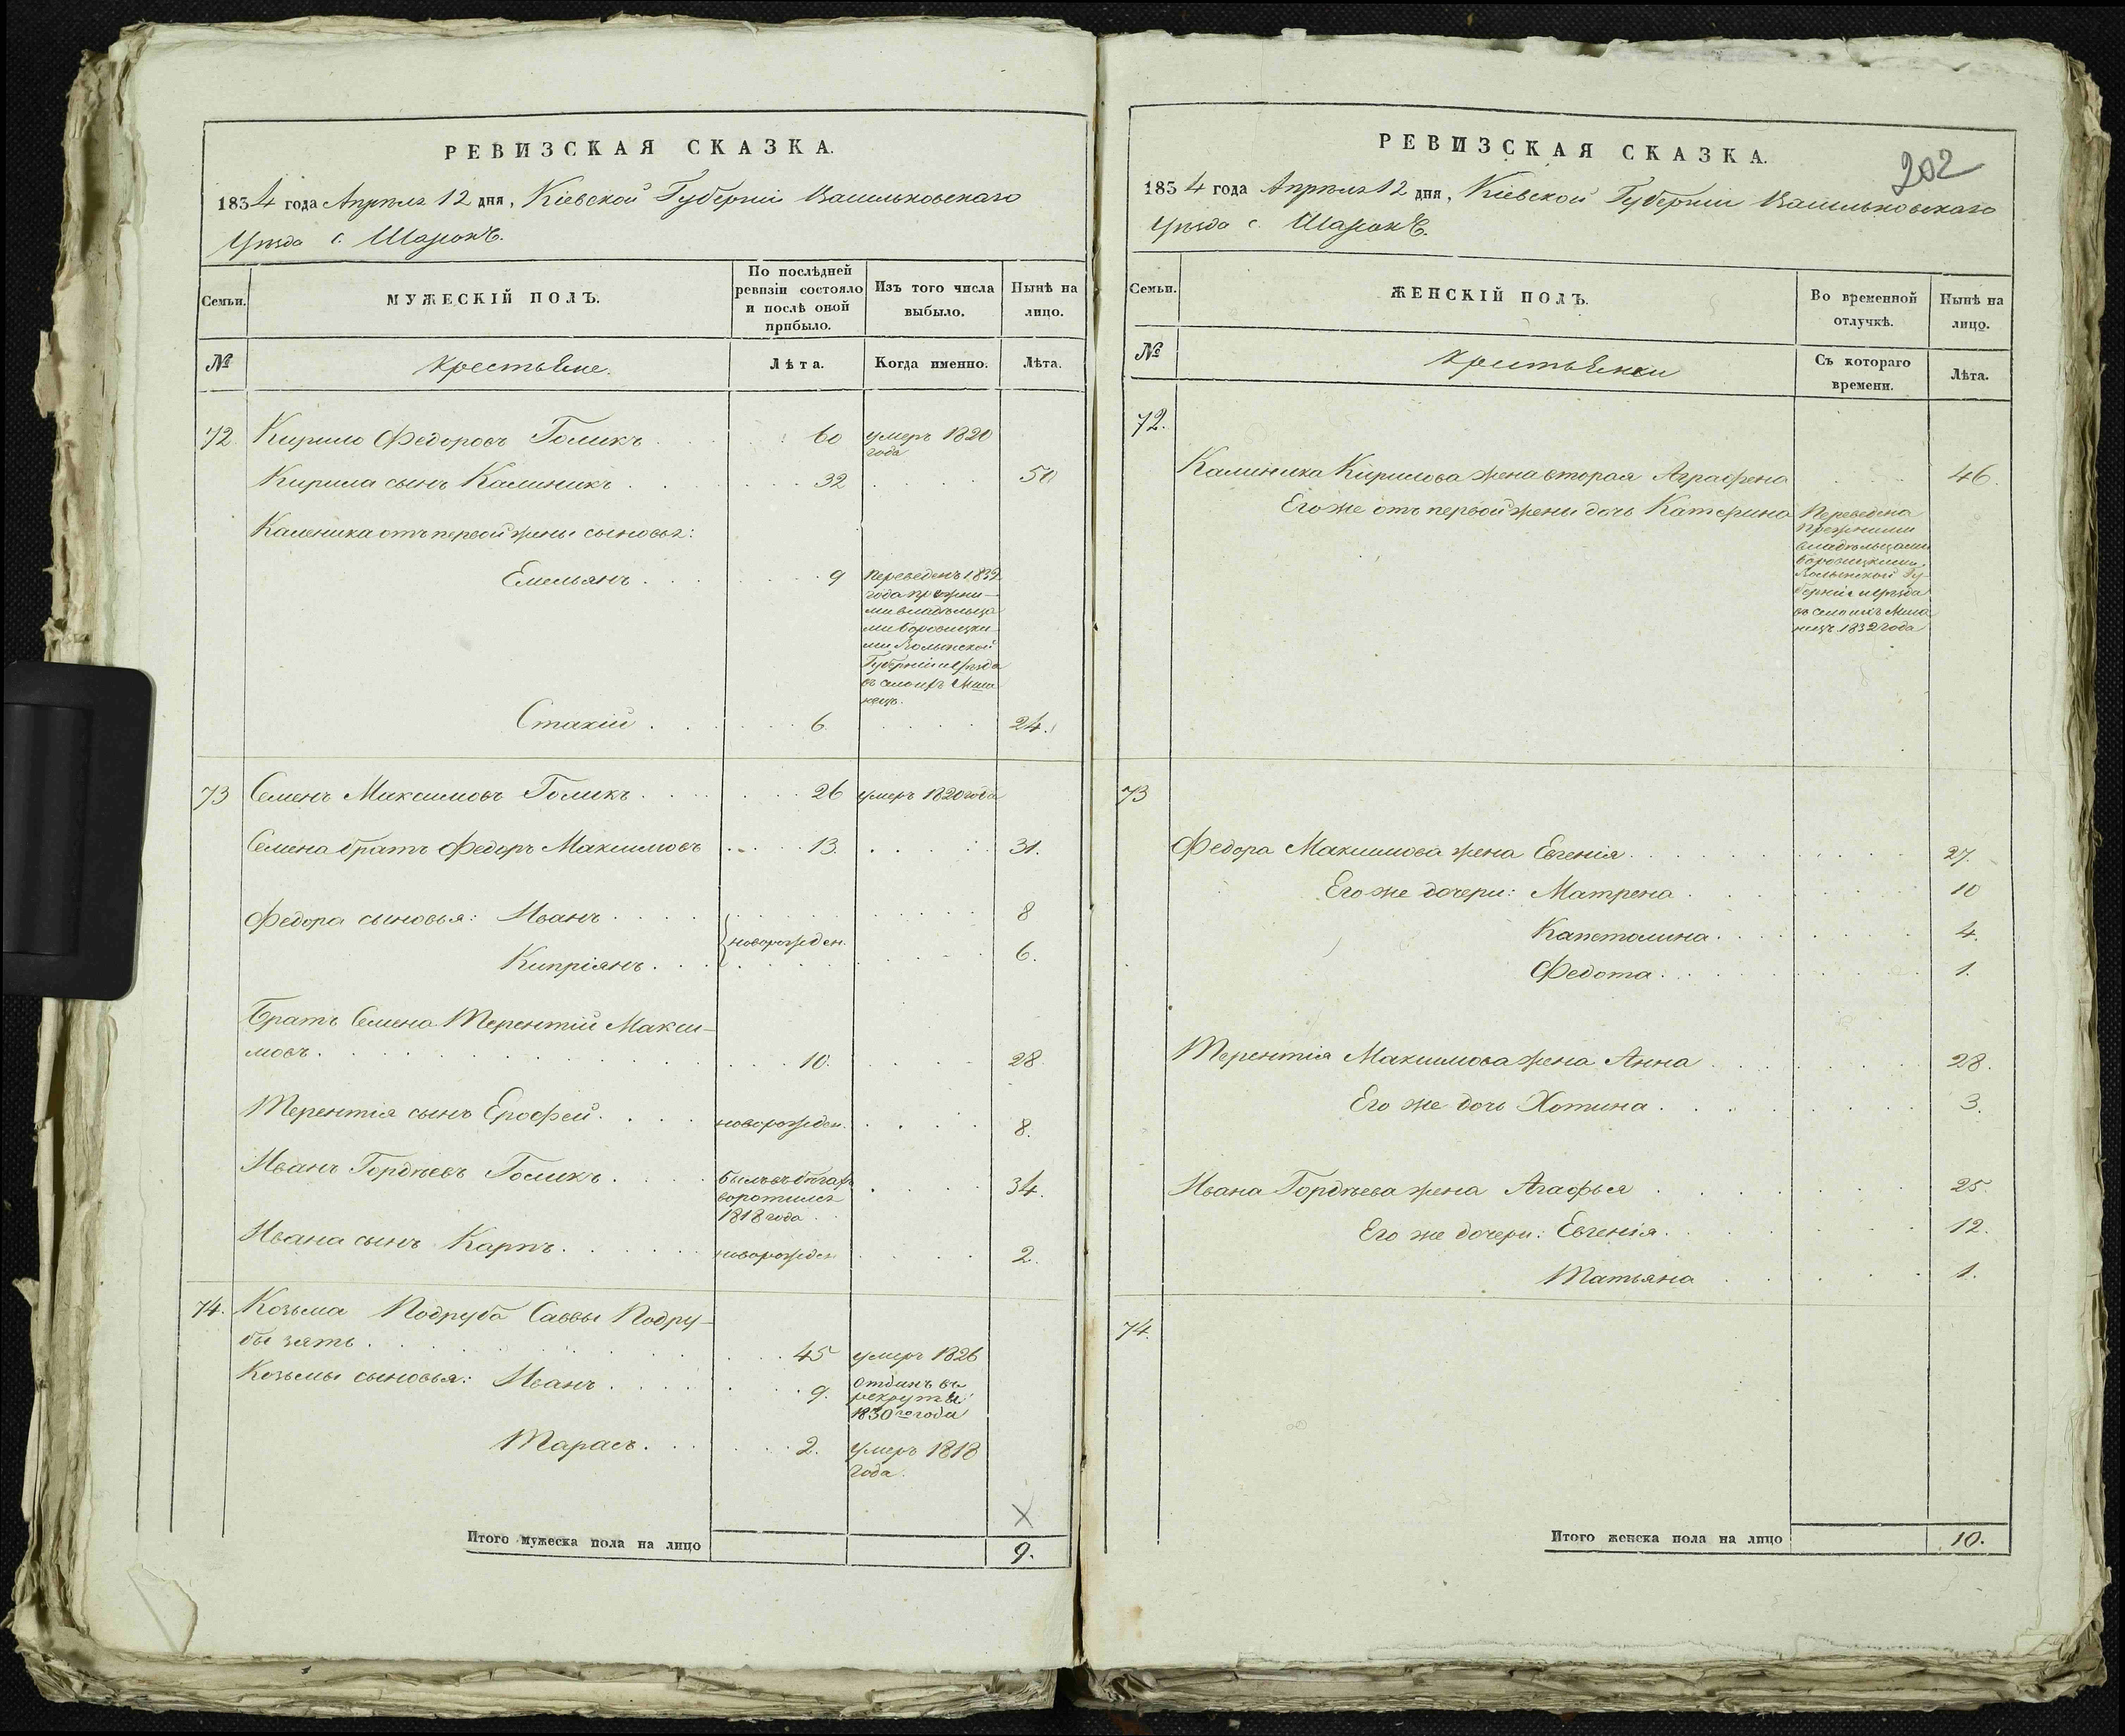 РЕВИЗСКАЯ СКАЗКА.
1834 года Апрѣля 12 дня, Кіевской Губерніи Васильковскаго
Уѣзда с.
Семьи.
МУЖЕСКІЙ ПОЛЪ.
По послѣдней
ревизіи состояло
и послѣ оной
прибыло.
Изъ того числа
выбыло.
Нынѣ на
лицо.
№
крестьяне.
Лѣта.
Когда именно.
Лѣта.
72. Кирило Федоровъ Голикъ 60 умеръ 1820
года
Кирила сынъ Калиникъ 32 50
Калиника отъ первой жены сыновья:
Емельянъ 9 переведенъ 1832
года прежни-
ми владѣльца
ми Боровицки
ми Волынской
Губерніи и Уѣзда
въ село ихъ
Стахій 6. 24.
73 Семенъ Максимовъ Голикъ 26 умеръ 1820 года
Семена братъ Федоръ Максимовъ 13. 31.
Федора сыновья: Иванъ 8
новорожден.
Кипріянъ 6.
Братъ Семена Терентій Макси-
мовъ 10. 28
Терентія сынъ Ерофей новорожден. 8.
Иванъ Гордѣевъ Голикъ былъ въ бѣгахъ 34.
воротился
1818 года
Ивана сынъ Карпъ новорожден 2.
74. Козьма Подруба Саввы Подру-
бы зять 45 умеръ 1826
Козьмы сыновья: Иванъ 9. отданъ въ
рекруты
1830го года
Тарасъ 2. умеръ 1818
года.
Х
Итого мужеска пола на лицо 9.
РЕВИЗСКАЯ СКАЗКА.
202
1834 года Апрѣля 12 дня, Кіевской Губерніи Васильковскаго
Уѣзда с.
Семьи.
ЖЕНСКІЙ ПОЛЪ.
Во временной
отлучкѣ.
Нынѣ на
лицо.
№
крестьянки
Съ котораго
времени.
Лѣта.
72.
Калиника Кирилова жена вторая Аграфена 46.
Его же отъ первой жены дочь Катерина Переведена
прежними
владѣльцами
Боровицкими
Волынской Гу-
берніи и Уѣзда
въ село ихъ
1832 года
73
Федора Максимова жена Евгенія 27.
Его же дочери: Матрена 10
Капетолина 4.
Федота 1.
Терентія Максимова жена Анна 28.
Его же дочь Хотина 3.
Ивана Гордѣева жена Агафья 25.
Его же дочери: Евгенія 12.
Татьяна 1.
74.
Итого женска пола на лицо 10.